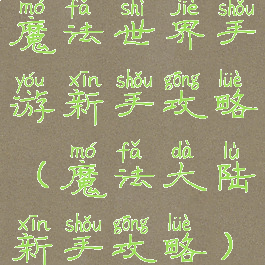 mó fǎ shì jiè shǒu
魔法世界手
yóu xīn shǒu gōng lüè
游新手攻略
mó fǎ dà lù
(魔法大陆
xīn shǒu gōng lüè
新手攻略)